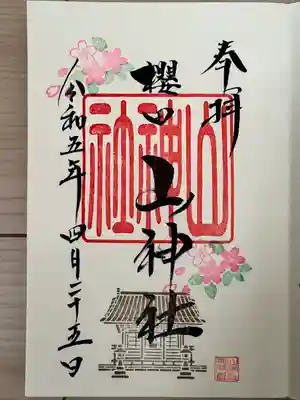 奉拝
櫻田山神社
山神社
令和五年四月二十五日